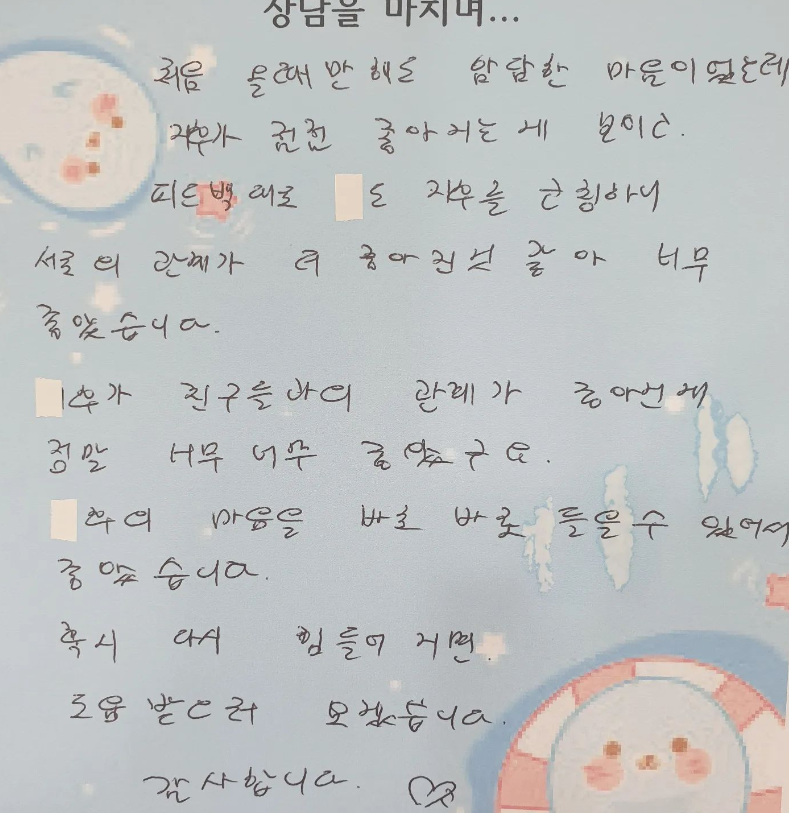 상담을 마치며...
처음 올때만 해도 암담한 마음이였는데
자우가 점점 좋아지는게 보이고.
피드백대로 도 자우를 코칭하니
서로의 관계가 더 좋아진것 같아 너무
좋았습니다.
우가 친구들과의 관계가 좋아진게
정말 너무 너무 좋았구요.
우의 마음을 바로 바로 들을수 있어서
좋았습니다.
혹시 다시 힘들어 지면.
도움 받으러 오겠습니다.
감사합니다. ♡